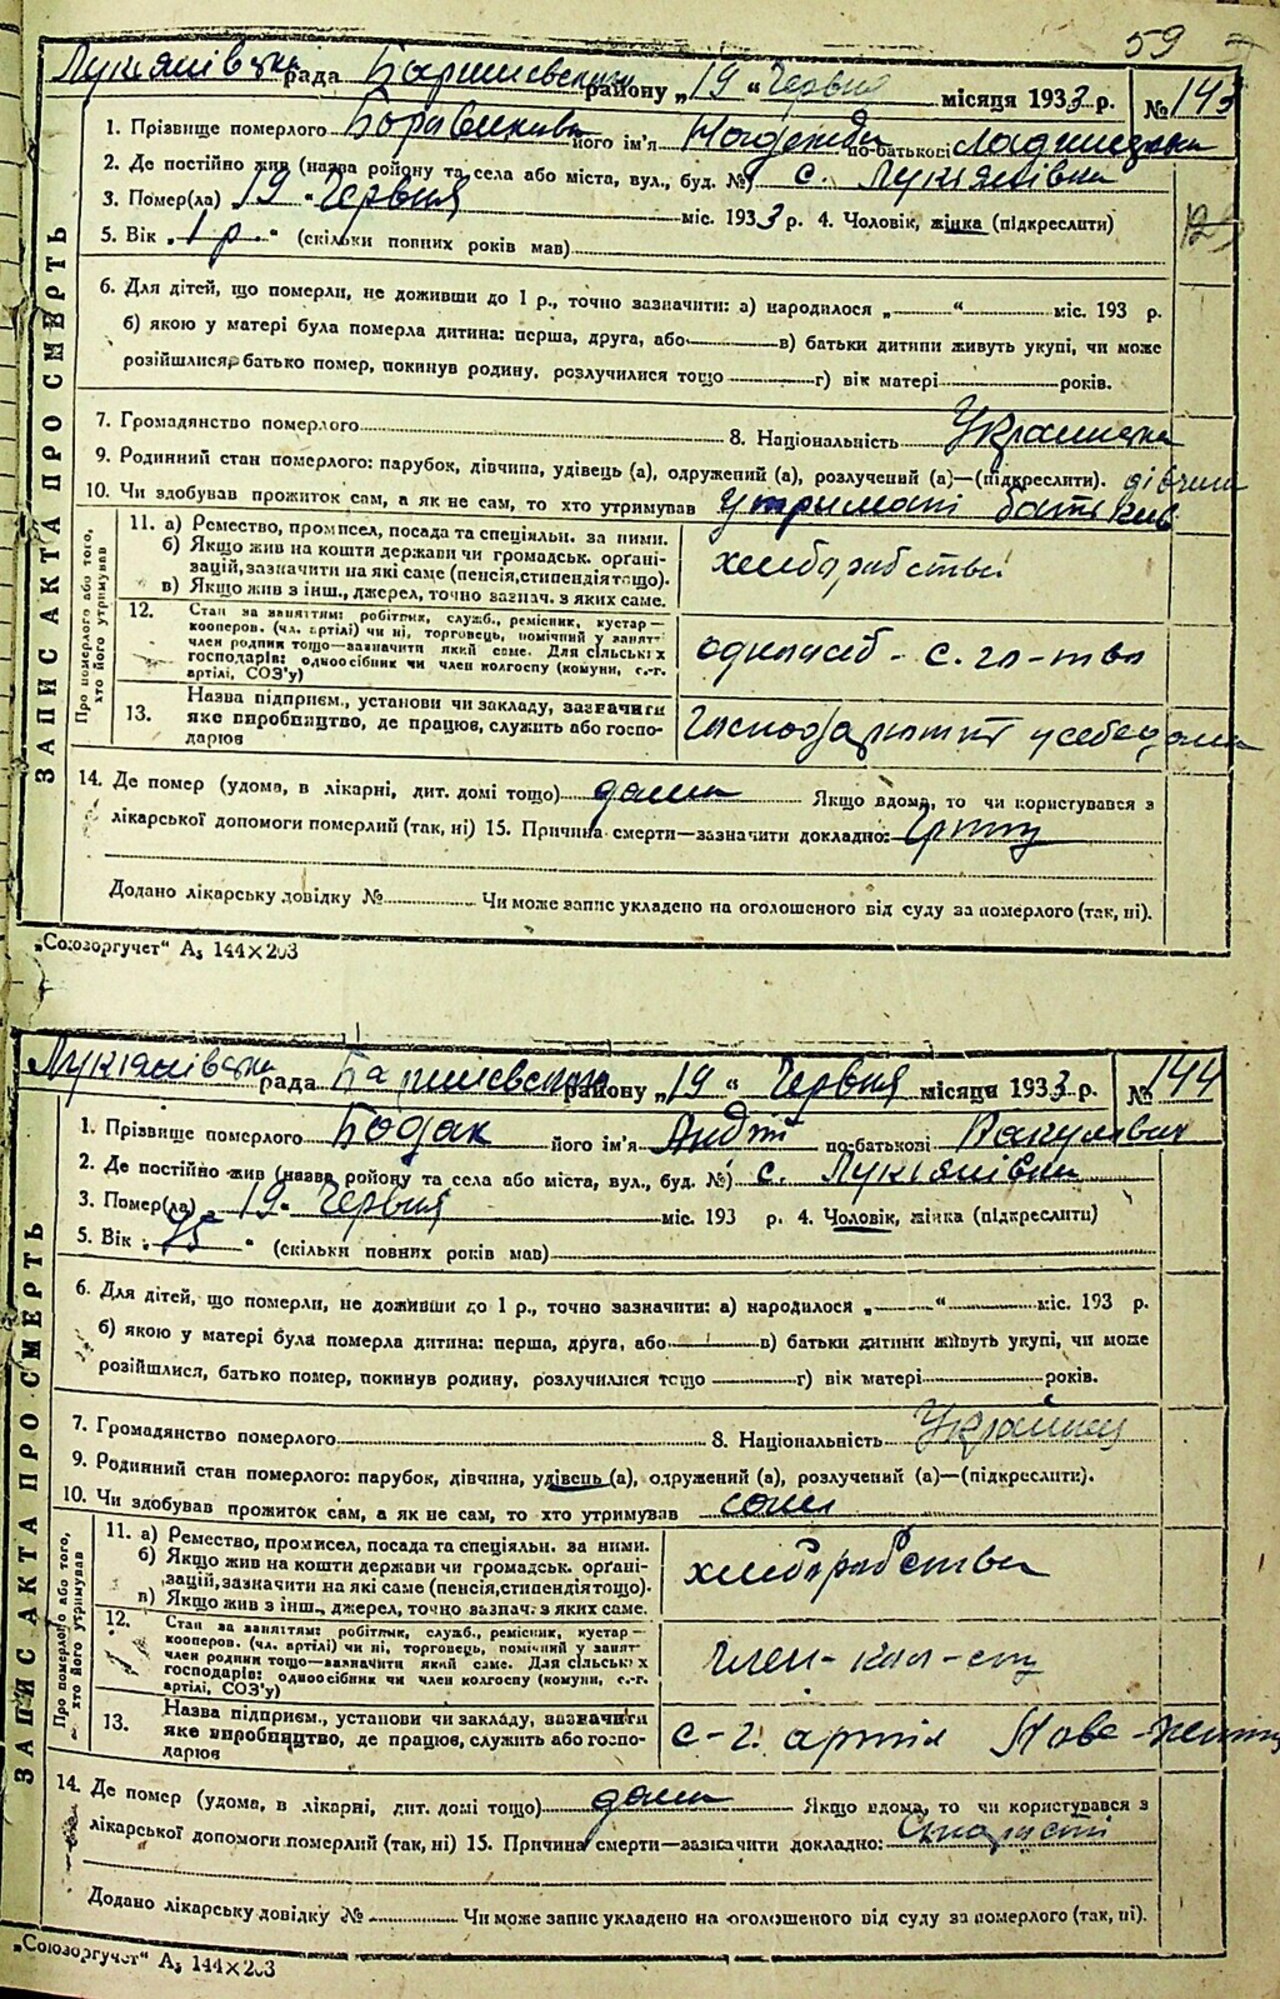 59
Лукіянівська рада Баришевського району „19“ Червня місяця 1933 р. № 143
1. Прізвище померлого його ім'я Надежда по-батькові
2. Де постійно жив (назва ройону та села або міста, вул., буд. №) с. Лукіянівка
3. Помер(ла) „19“ Червня міс. 1933 р. 4. Чоловік, жінка (підкреслити)
5. Вік „1 р.“ (скільки повних років мав)
6. Для дітей, що померли, не доживши до 1 р., точно зазначити: а) народилося „ “ міс. 193 р.
б) якою у матері була померла дитина: перша, друга, або в) батьки дитини живуть укупі, чи може
розійшлися, батько помер, покинув родину, розлучилися тощо г) вік матері років.
7. Громадянство померлого 8. Національність Украинка
9. Родинний стан померлого: парубок, дівчина, удівець (а), одружений (а), розлучений (а)—(підкреслити). дівчина
10. Чи здобував прожиток сам, а як не сам, то хто утримував утримані батьків
ЗАПИС АКТА ПРО СМЕРТЬ
Про померлого або того, хто його утримував
11. а) Ремество, промисел, посада та спеціяльн. за ними.
б) Якщо жив на кошти держави чи громадськ. орґані-
зацій, зазначити на які саме (пенсія, стипендія тощо).
в) Якщо жив з інш., джерел, точно зазнач. з яких саме.
хлеборобства
12. Стан за заняттям: робітник, служб., ремісник, кустар—
кооперов. (чл. артілі) чи ні, торговець, помічний у занят-
член родини тощо—зазначити який саме. Для сільських
господарів: одноосібник чи член колгоспу (комуни, с.-г.
артілі, СОЗ'у)
одноосіб - с. го-тво
13. Назва підприєм., установи чи закладу, зазначити
яке виробництво, де працює, служить або госпо-
дарює
у себе дома
14. Де помер (удома, в лікарні, дит. домі тощо) дома Якщо вдома, то чи користувався з
лікарської допомоги померлий (так, ні) 15. Причина смерти—зазначити докладно: Грипп
Додано лікарську довідку № Чи може запис укладено на оголошеного від суду за померлого (так, ні).
„Союзоргучет“ А₅ 144×203
Лукіянівська рада Баришевського району „19“ Червня місяця 1933 р. № 144
1. Прізвище померлого Бодак його ім'я Андрій по-батькові Вакулович
2. Де постійно жив (назва ройону та села або міста, вул., буд. №) с. Лукіянівка
3. Помер(ла) „19“ Червня міс. 193 р. 4. Чоловік, жінка (підкреслити)
5. Вік „75“ (скільки повних років мав)
6. Для дітей, що померли, не доживши до 1 р., точно зазначити: а) народилося „ “ міс. 193 р.
б) якою у матері була померла дитина: перша, друга, або в) батьки дитини живуть укупі, чи може
розійшлися, батько помер, покинув родину, розлучилися тощо г) вік матері років.
7. Громадянство померлого 8. Національність Українец
9. Родинний стан померлого: парубок, дівчина, удівець (а), одружений (а), розлучений (а)—(підкреслити).
10. Чи здобував прожиток сам, а як не сам, то хто утримував
ЗАПИС АКТА ПРО СМЕРТЬ
Про померлого або того, хто його утримував
11. а) Ремество, промисел, посада та спеціяльн. за ними.
б) Якщо жив на кошти держави чи громадськ. орґані-
зацій, зазначити на які саме (пенсія, стипендія тощо).
в) Якщо жив з інш., джерел, точно зазнач. з яких саме.
хлеборобства
12. Стан за заняттям: робітник, служб., ремісник, кустар—
кооперов. (чл. артілі) чи ні, торговець, помічний у занят-
член родини тощо—зазначити який саме. Для сільських
господарів: одноосібник чи член колгоспу (комуни, с.-г.
артілі, СОЗ'у)
член-кол-спу
13. Назва підприєм., установи чи закладу, зазначити
яке виробництво, де працює, служить або госпо-
дарює
с-г. артіл Нове-життя
14. Де помер (удома, в лікарні, дит. домі тощо) дома Якщо вдома, то чи користувався з
лікарської допомоги померлий (так, ні) 15. Причина смерти—зазначити докладно: Старасті
Додано лікарську довідку № Чи може запис укладено на оголошеного від суду за померлого (так, ні).
„Союзоргучет“ А₅ 144×203